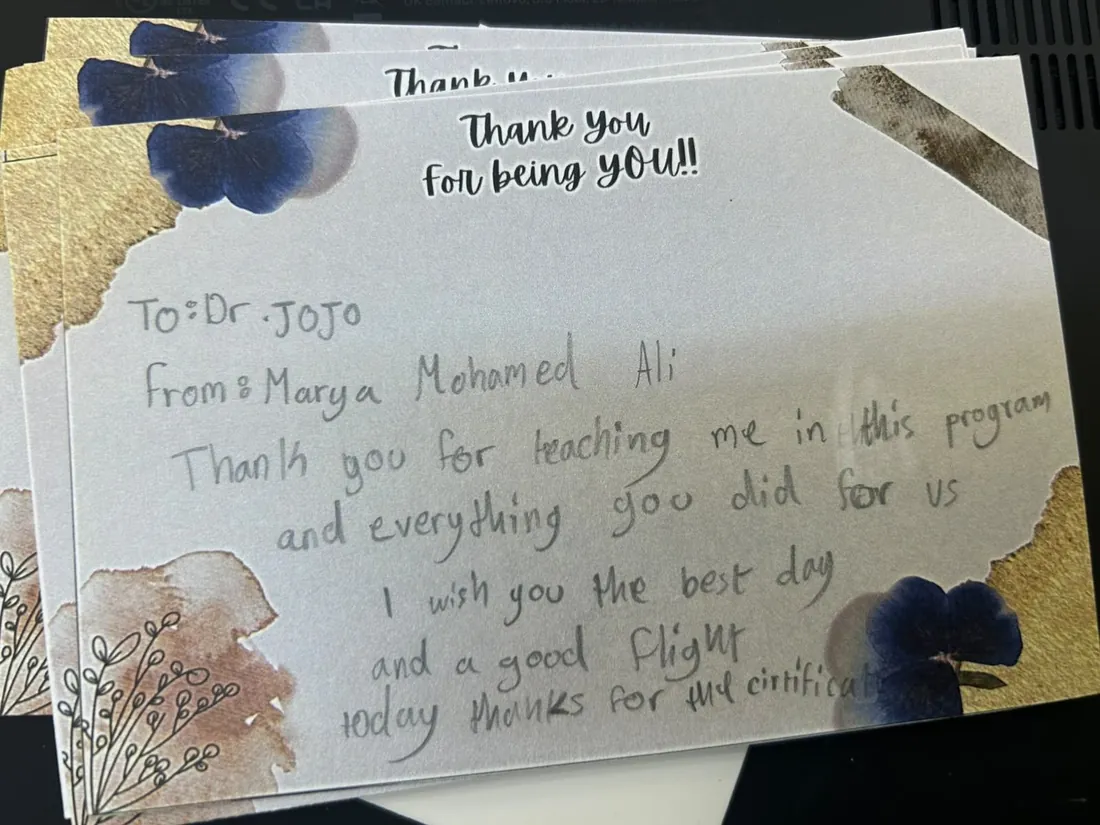 Thank you
Thank you
for being you!!
To: Dr. JOJO
from: Marya Mohamed Ali
Thank you for teaching me in this program
and everything you did for us
I wish you the best day
and a good flight
today thanks for the cirtificat